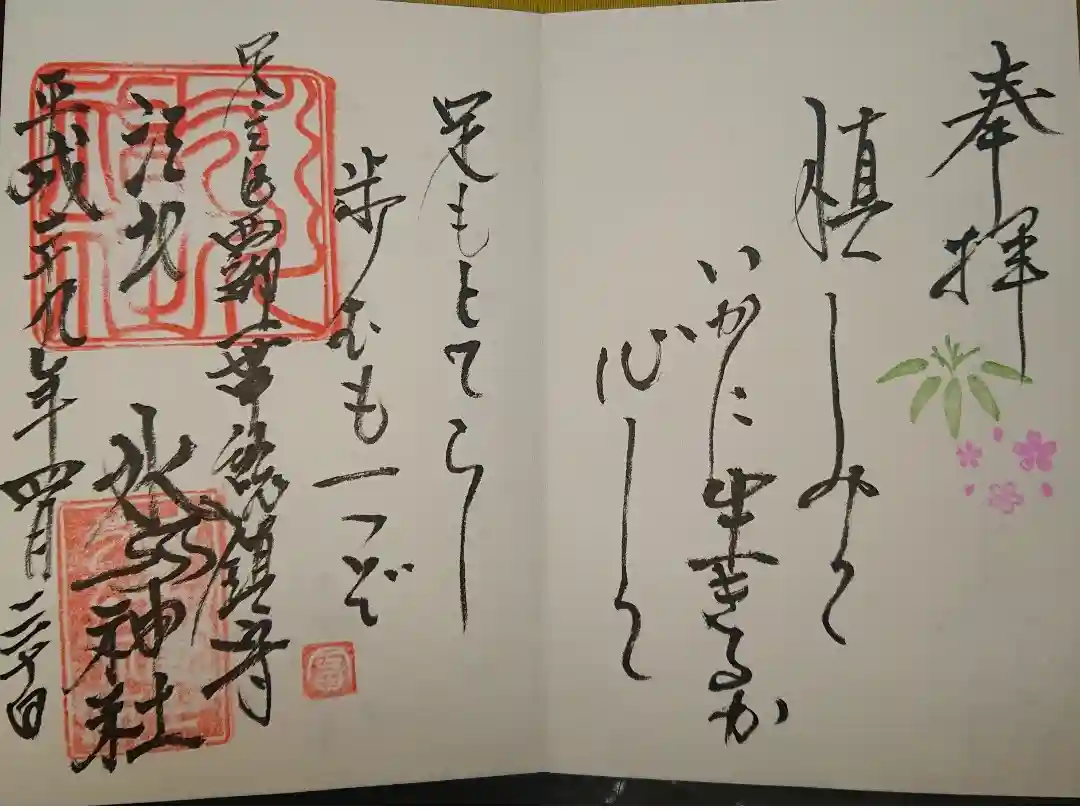 奉拝
慎しみて
いかに生きるか
心して
足もとてらし
歩むも一つぞ
足立 鎮守
江北
氷川神社
平成二十九年四月 日